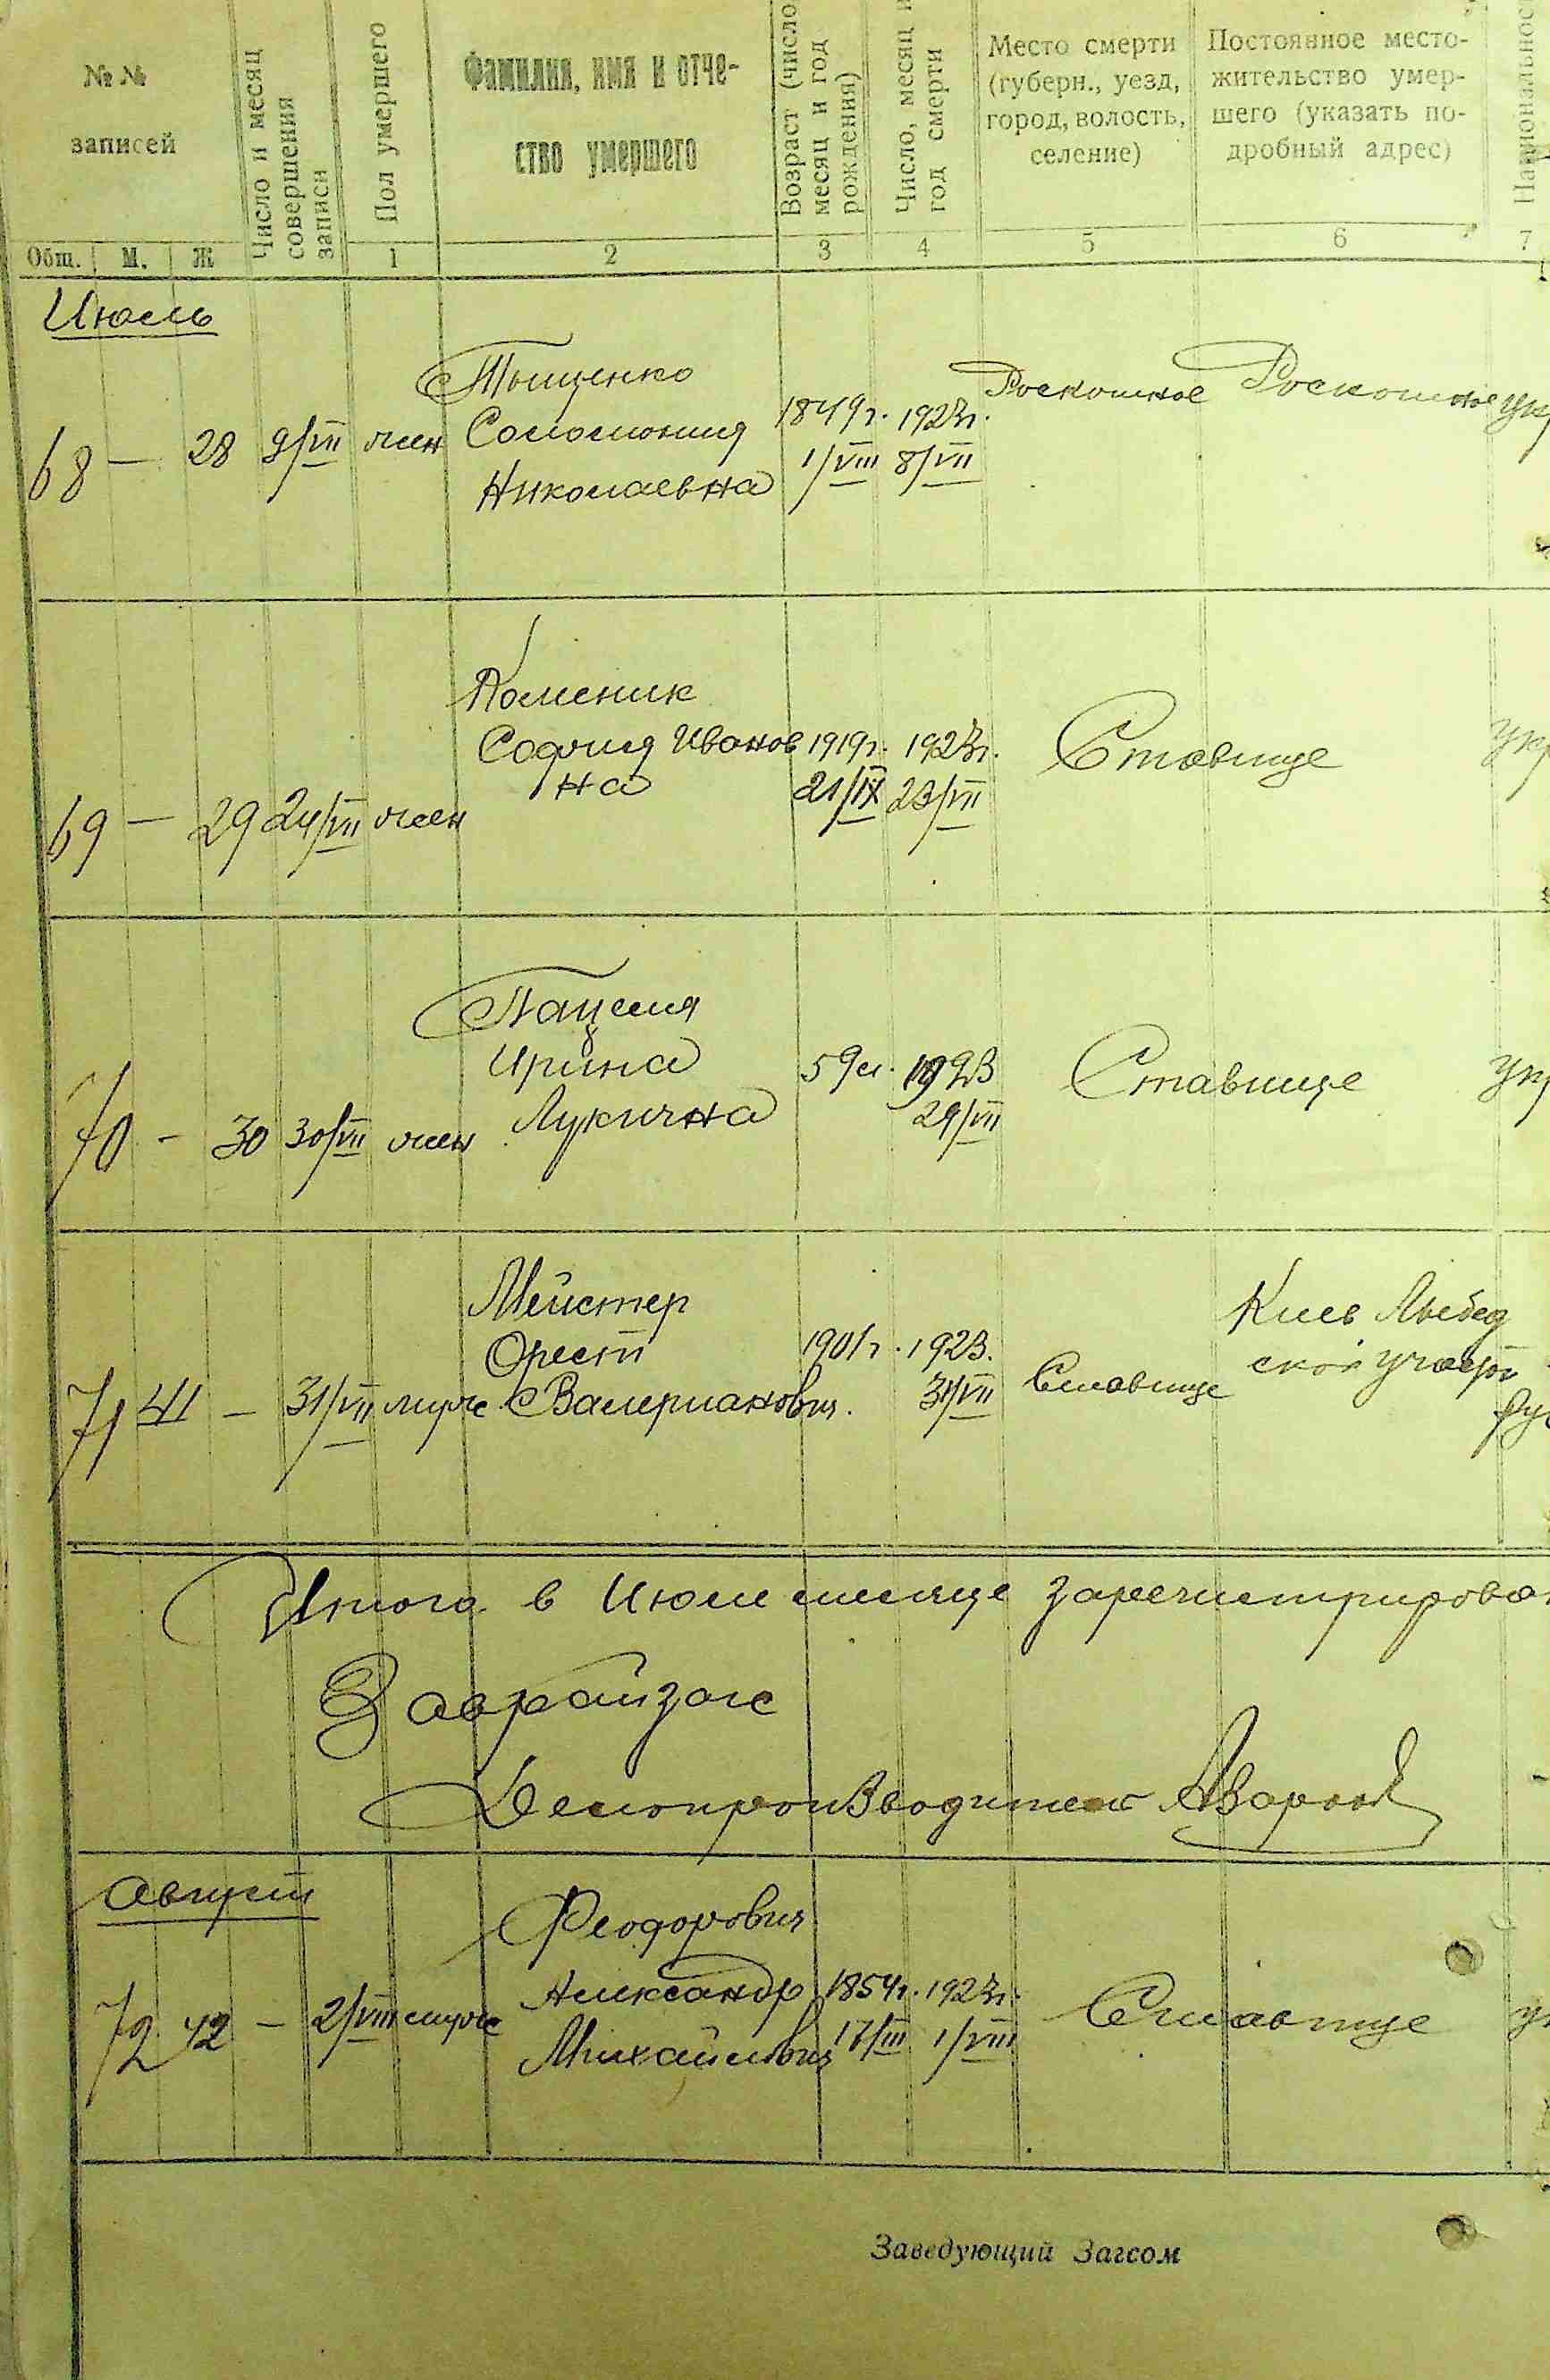 № №
записей
Общ. М. Ж
Число и месяц
совершения
записи
Пол умершего
1
Фамилия, имя и отче-
ство умершего
2
Возраст (число
месяц и год
рождения)
3
Число, месяц и
год смерти
4
Место смерти
(губерн., уезд,
город, волость,
селение)
5
Постоянное место-
жительство умер-
шего (указать по-
дробный адрес)
6
Национальнос
7
Июль
68 — 28 9/VII жен
Тыщенко
Соломония
Николаевна
1849г.
1/VIII
1923г.
8/VII
Роскошное
Роскошное
укр
69 — 29 24/VII жен
Коленик
София Иванов
на
1919г.
21/IX
1923г.
23/VII
Ставище
укр
70 - 30 30/VII жен
Пацеля
Ирина
Лукична
59 л.
1923
29/VII
Ставище
укр
71 41 — 31/VII муже
Мейстер
Орест
Валерианович.
1901г.
1923.
31/VII
Ставище
Киев Лыбед
ской участок
рус
Итого в Июле месяце зарегистрирован
Заврайзагс
Делопроизводитель
Август
72 42 — 2/VIII муже
Феодорович
Александр
Михайлович
1854г.
17/III
1923г.
1/VIII
Ставище
ук
Заведующий Загсом